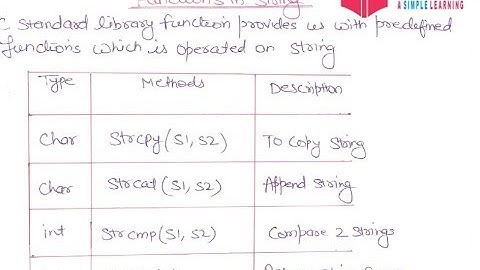 A SIMPLE LEARNING
Functions in String
C Standard library function provides us with predefined
functions which is operated on string
Type Methods Description
Char Strcpy(S1, S2) To Copy String
Char Strcat(S1, S2) Append string
int Strcmp(S1, S2) Compare 2 strings